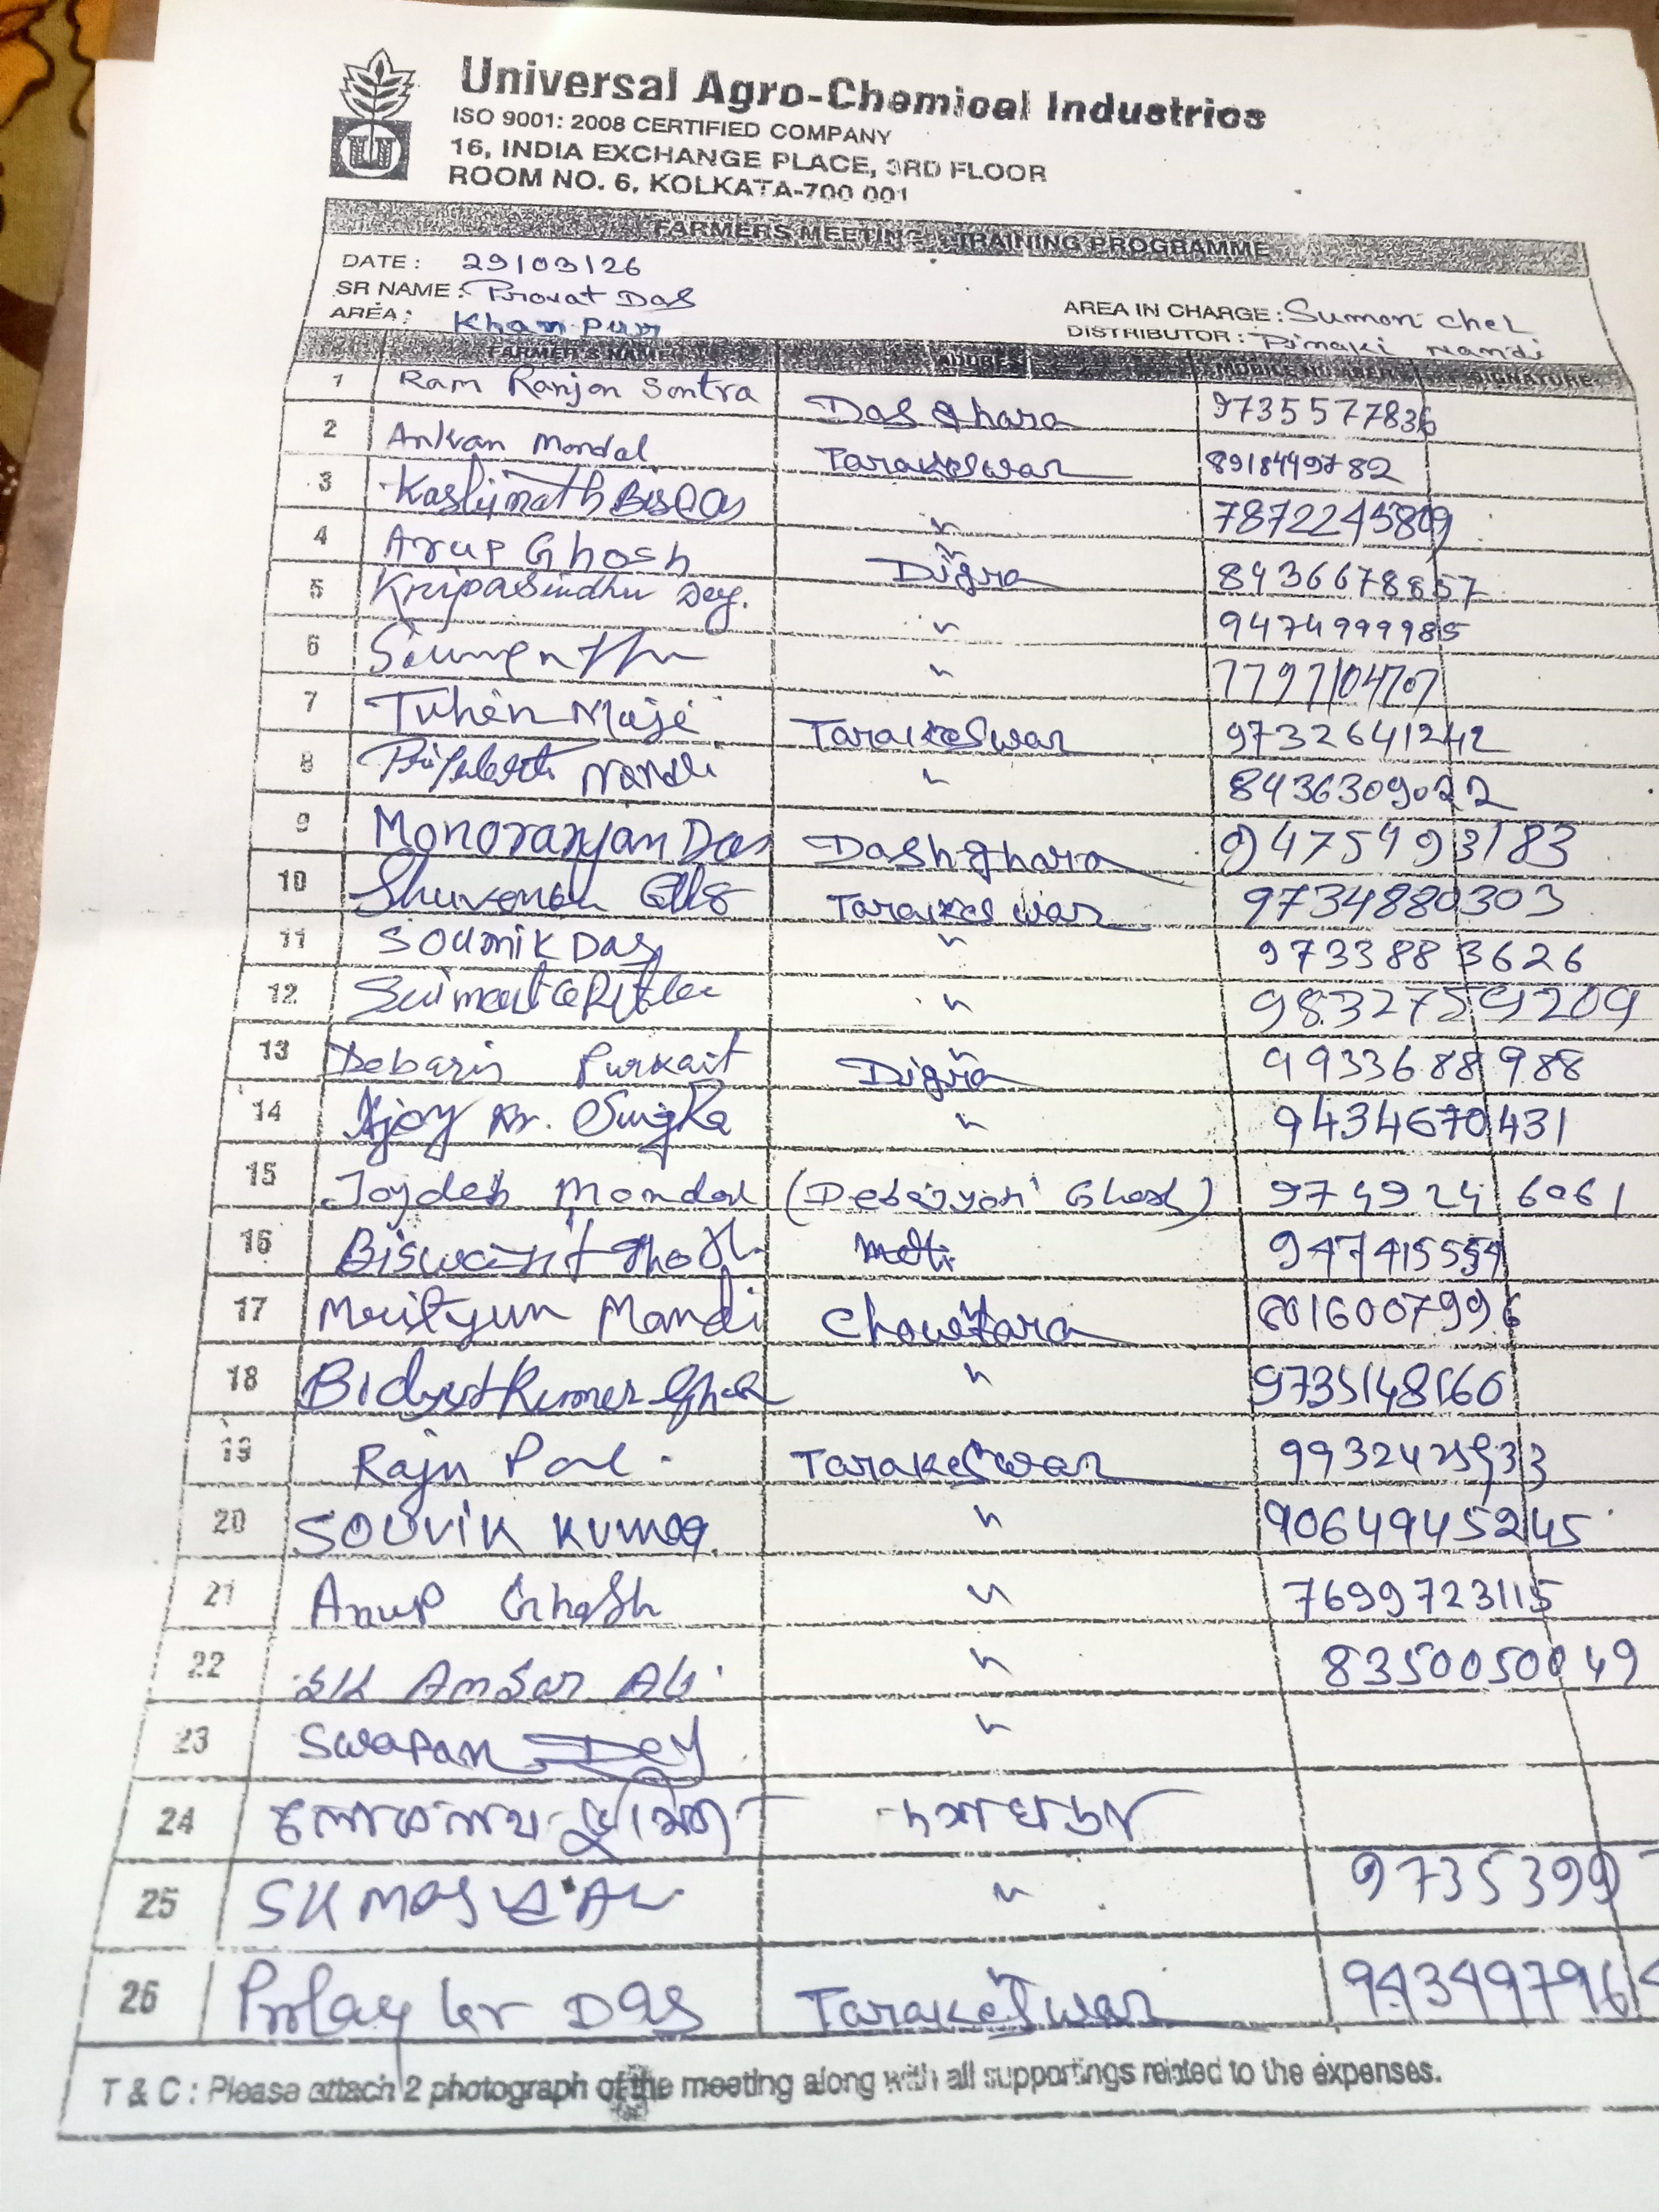 Universal Agro-Chemical Industries
ISO 9001: 2008 CERTIFIED COMPANY
16, INDIA EXCHANGE PLACE, 3RD FLOOR
ROOM NO. 6, KOLKATA-700 001
FARMERS MEETING TRAINING PROGRAMME
DATE : 29/03/26
SR NAME : Provat Das
AREA IN CHARGE : Sumon Chel
AREA : Khanpur
DISTRIBUTOR : Pinaki Nandi
FARMER'S NAME ADDRESS MOBILE NUMBER SIGNATURE
1 Ram Ranjan Santra Dasghara 9735577836
2 Ankan Mondal Tarakeswar 8918449782
3 Kashinath Biswas " 7872245809
4 Arup Ghosh Digra 8436678857
5 Kripasindhu Dey. " 9474999985
6 " 7797104707
7 Tuhin Maji Tarakeswar 9732641242
8 Nandi " 8436309022
9 Monoranjan Das Dashghara 9475493183
10 Tarakeswar 9734880303
11 Soumik Das " 9733883626
12 " 9832759209
13 Debasis Purkait Digra 9933688988
14 Ajoy Kr. Singha " 9434670431
15 Joydeb Mondal (Debajyoti Ghosh) 9749246061
16 Biswajit Ghosh. 947415554
17 Mrityun Mandi Chowtara 6016007996
18 Bidyut Kumar Ghosh " 9735148160
19 Raju Pal. Tarakeswar 9932425933
20 SOUVIK KUMAR. " 90649945245
21 Anup Ghosh " 7699723115
22 SK Ansar Ali. " 8350050049
23 Swapan Dey "
24 লোকনাথ ভূমিজ দশঘড়া
25 SK " 9735399
26 Prolay kr Das Tarakeswar 943497964
T & C : Please attach 2 photograph of the meeting along with all supportings related to the expenses.